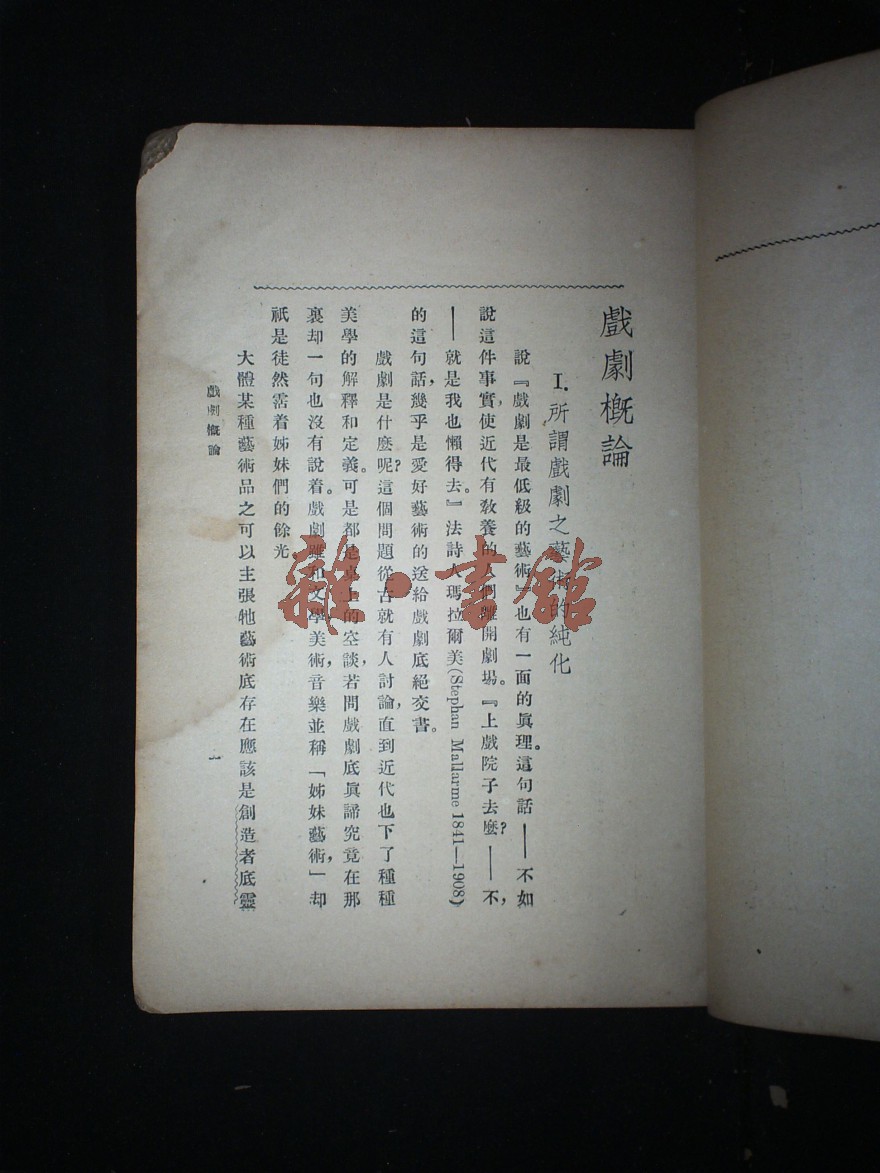 戲劇概論
I. 所謂戲劇之藝術的純化
說『戲劇是最低級的藝術』也有一面的眞理。這句話——不如
說這件事實,使近代有敎養的人們離開劇場。『上戲院子去麼?——不,
——就是我也懶得去。』法詩人瑪拉爾美(Stephan Mallarme 1841—1908)
的這句話,幾乎是愛好藝術的送給戲劇底絕交書。
戲劇是什麼呢?這個問題從古就有人討論,直到近代也下了種種
美學的解釋和定義。可是都是桌上的空談,若問戲劇底眞諦究竟在那
裏却一句也沒有說着。戲劇雖和文學,美術,音樂並稱「姊妹藝術,」却
祇是徒然霑着姊妹們的餘光。
大體某種藝術品之可以主張牠藝術底存在應該是創造者底靈
戲劇概論
一
雜·書館